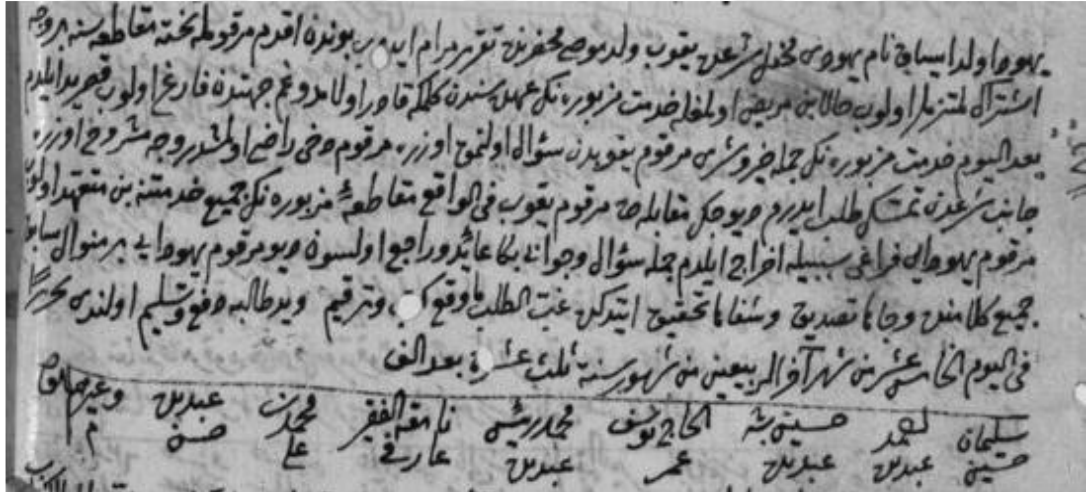 یهودا ولد اسیاق نام یهودی محفل شرعده یعقوب ولد موصی محضرنده تقریر مرام ایدوب بوندن اقدم مرقوملە تحته مقاطعەسنه بر وجه
اشتراك ملتزملر اولوب حالا بن مریض اولمغله خدمت مزبورەنك عهدەسندن كلمكه قادر اولامدوغم جهتدن فارغ اولوب قصر ید ایلدم
بعد الیوم خدمت مزبورەنك جمله خیر و شری مرقوم یعقوبدن سؤال اولنمق اوزره مرقوم دخی راضی اولمشدر وجه مشروح اوزره
جانب شرعدن تمسك طلب ایدرم دیوجك مقابلەده مرقوم یعقوب فی الواقع مقاطعهٔ مزبورەنك جمیع خدمتنه بن متعهد اولوب
مرقوم یهودای فراغی سببیله اخراج ایلدم جمله سؤال و جوابی بكا عائد و راجع اولسون دیو مرقوم یهودایی بر منوال سابق
جمیع كلامنده وجاها تصدیق و شفاها تحقیق ایتدكده غب الطلب ما وقع كتب و ترقیم و ید طالبه دفع و تسلیم اولندی تحریرا
فی الیوم الخامس عشر من شهر آخر الربیعین من شهور سنة ثلث عشرة بعد الف
سلیمان احمد حسین بشه الحاج یوسف محمد رئیس نامقه الفقیر محمد بن عبدین وغیرهما
حسین عبدین عبدین عمر عبدین عارفی علی حسن م